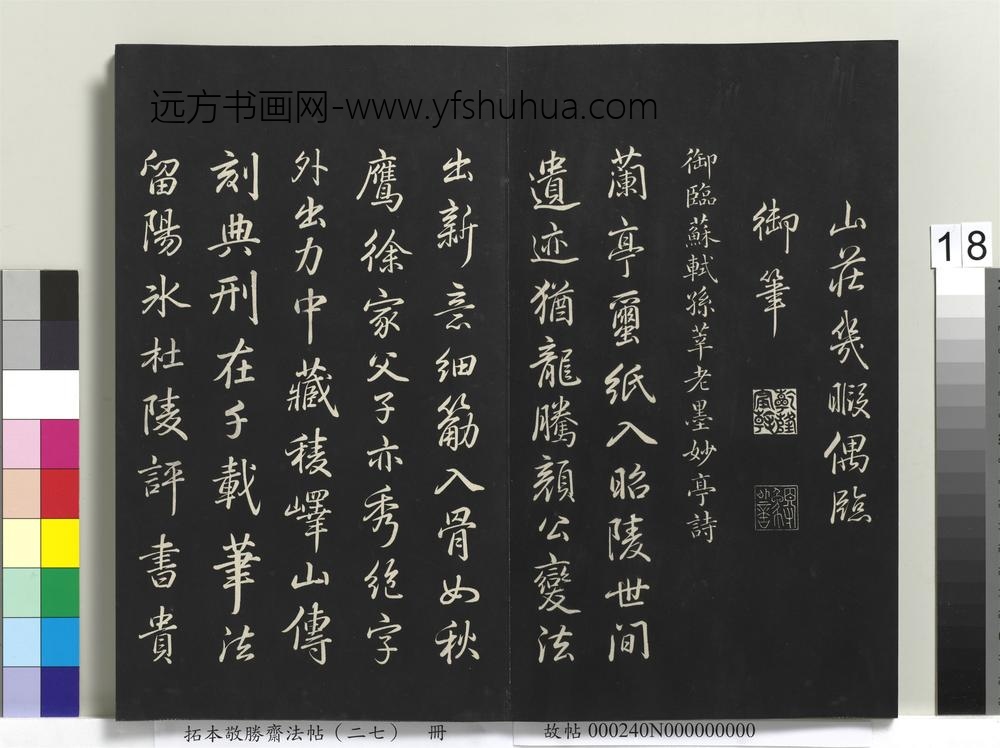 远方书画网-www.yfshuhua.com
山莊幾暇偶臨
御筆
御臨蘇軾孫莘老墨妙亭詩
蘭亭繭紙入昭陵世间
遺迹猶龍騰顏公變法
出新意細筋入骨如秋
鷹徐家父子亦秀絕字
外出力中藏稜嶧山傳
刻典刑在千載筆法
留陽冰杜陵評書貴
18
拓本敬勝齋法帖（二七） 冊
故帖 000240N000000000